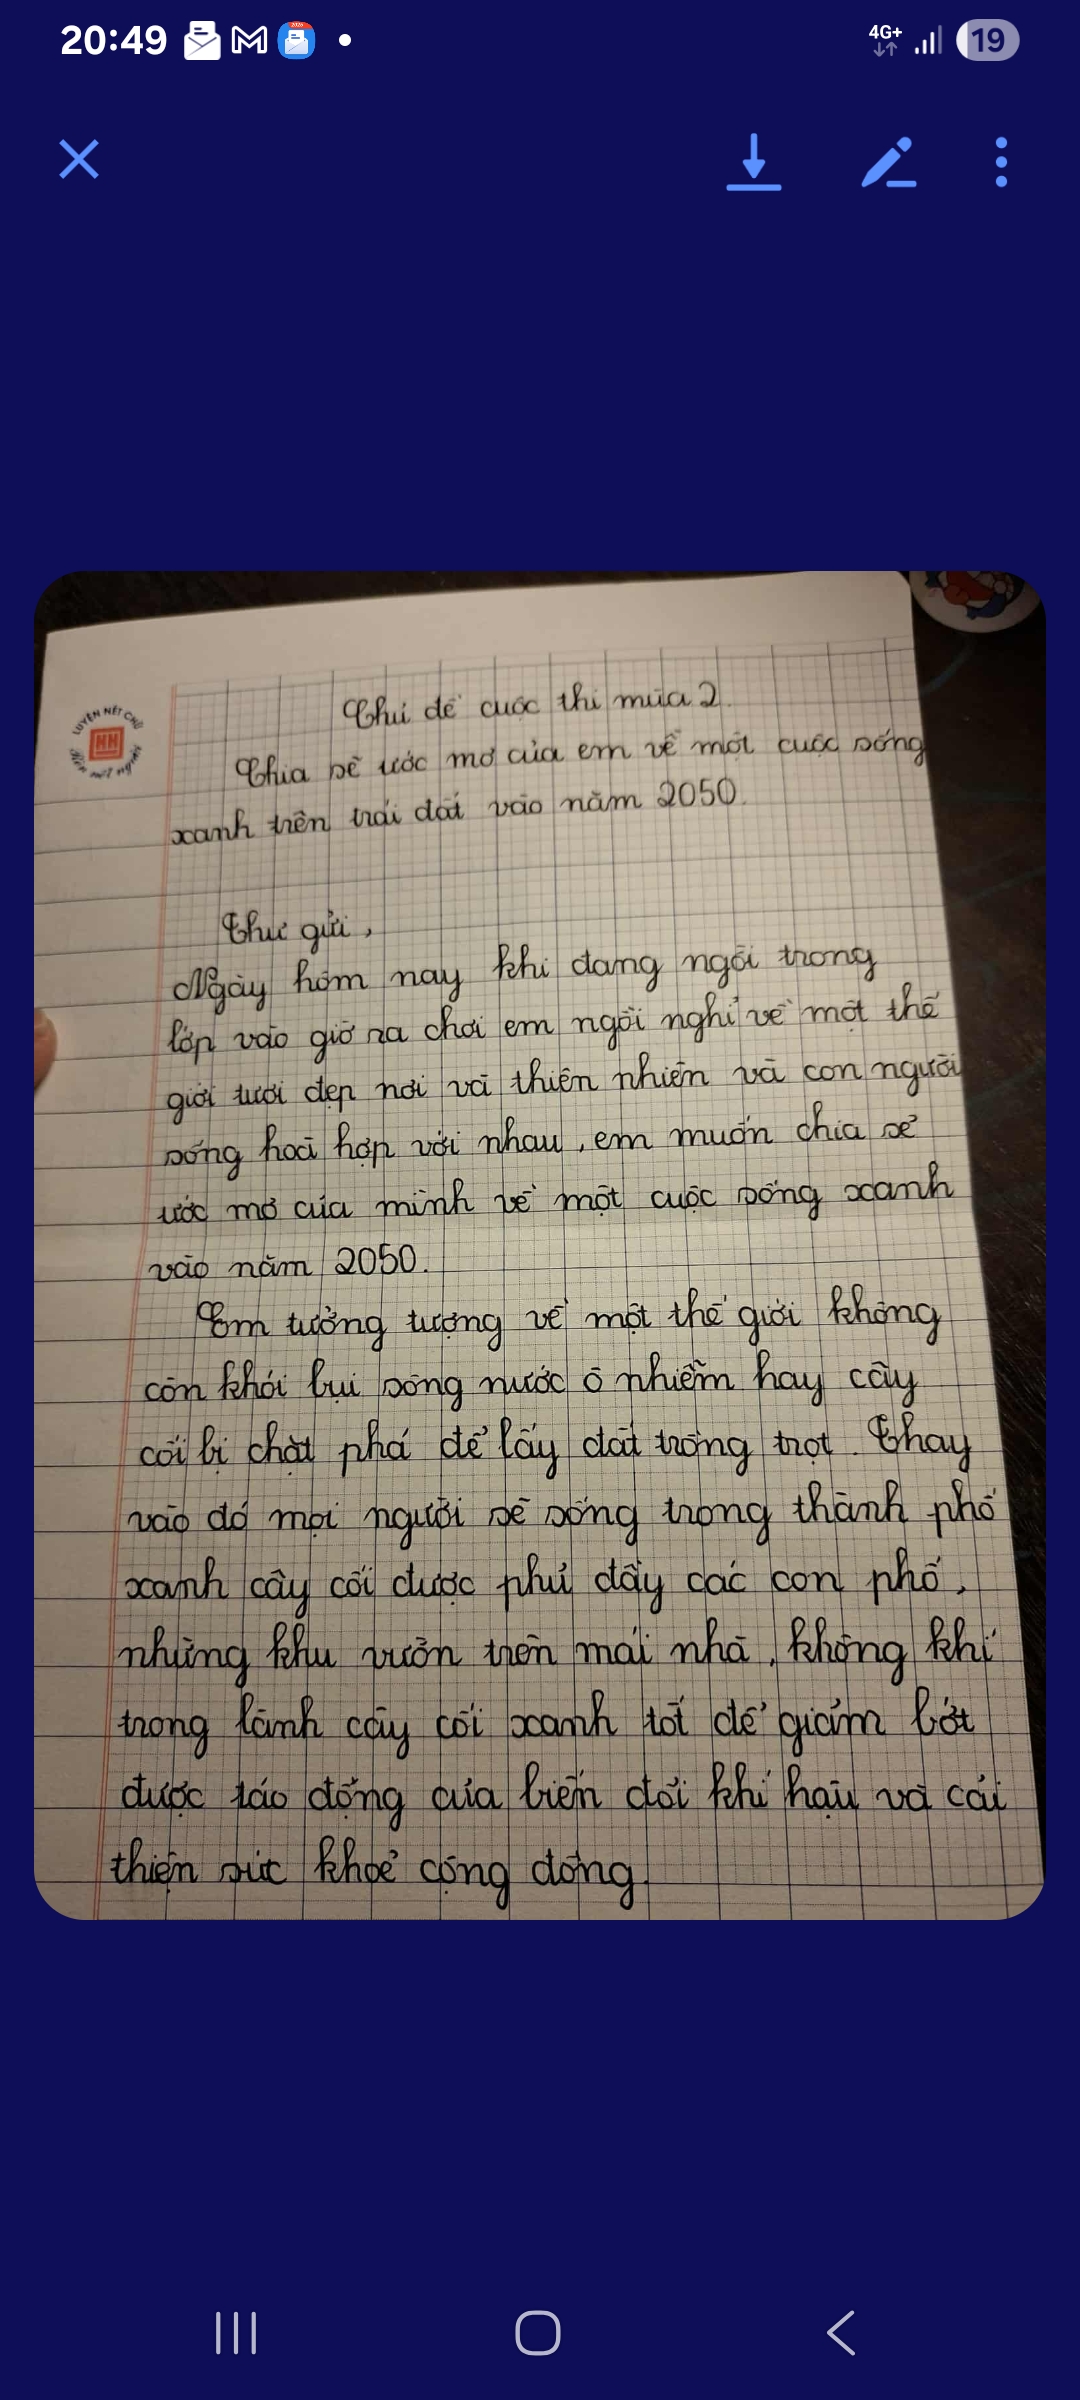 20:49
4G+
19
LUYỆN NÉT CHỮ
Rèn nết người
Chủ đề cuộc thi mùa 2.
Chia sẻ ước mơ của em về một cuộc sống
xanh trên trái đất vào năm 2050.
Thư gửi,
Ngày hôm nay khi đang ngồi trong
lớp vào giờ ra chơi em ngồi nghĩ về một thế
giới tươi đẹp nơi và thiên nhiên và con người
sống hoà hợp với nhau, em muốn chia sẻ
ước mơ của mình về một cuộc sống xanh
vào năm 2050.
Em tưởng tượng về một thế giới không
còn khói bụi sông nước ô nhiễm hay cây
cối bị chặt phá để lấy đất trồng trọt. Thay
vào đó mọi người sẽ sống trong thành phố
xanh cây cối được phủ đầy các con phố,
những khu vườn trên mái nhà, không khí
trong lành cây cối xanh tốt để giảm bớt
được táo động của biến đổi khí hậu và cải
thiện sức khoẻ cộng đồng.